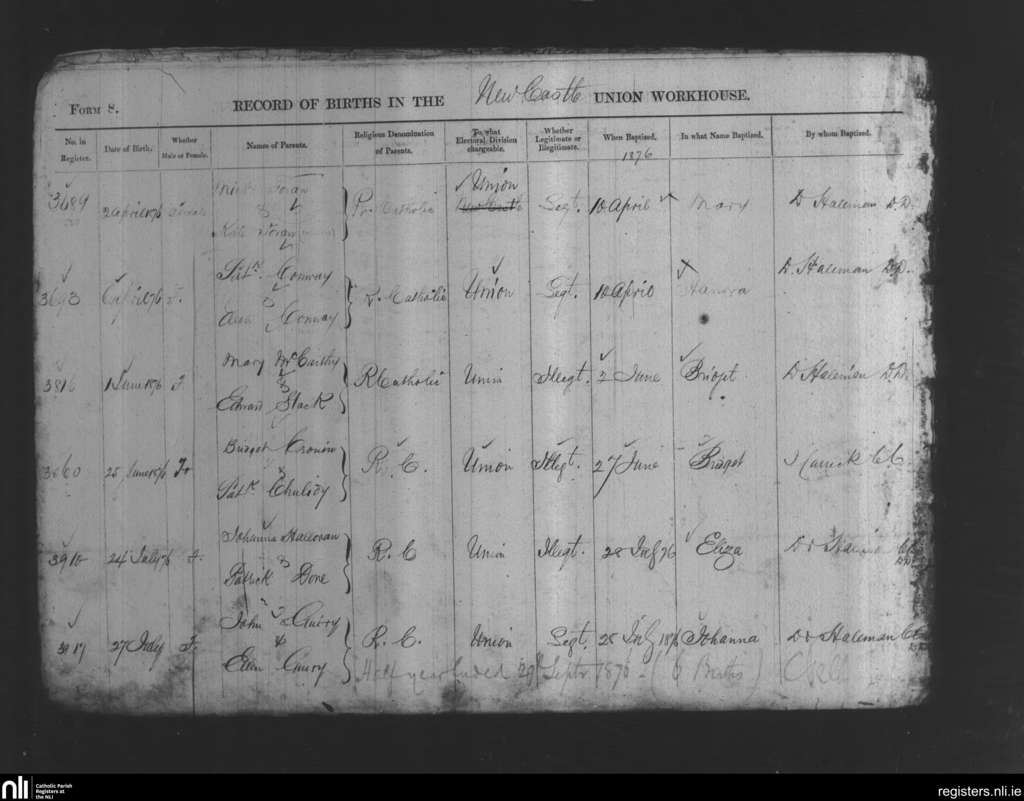 FORM 8. RECORD OF BIRTHS IN THE New Castle UNION WORKHOUSE.
No. in Register. Date of Birth. Whether Male or Female. Names of Parents. Religious Denomination of Parents. To what Electoral Division chargeable. Whether Legitimate or Illegitimate. When Baptised. In what Name Baptised. By whom Baptised.
1876
Union
3689 2 April 1876 & Catholic New Castle Legt. 10 April Mary D Haleman D.D.
Kate
Patk. Conway
3693 April 76 F. & R. Catholic Union Legt. 10 April Hanora D. Haleman D.D.
Conway
Mary McCarthy
3816 1 June 1876 F. & R Catholic Union Illegt. 2 June Bridget D Haleman D.D.
Edward Slack
Bridget Cronin
3860 25 June 1876 F. & R. C. Union Illegt. 27 June Bridget Carrick CC
Patk
Johanna Halloran
3910 24 July 76 F. & R. C Union Illegt. 28 July 76 Eliza
Patrick Dore
John
27 July F. & R. C. Union Legt. 28 July 1876 Johanna Dr Haleman
Ellen
Half year ended 29th Septr. 1876 - (6 Births)
nli Catholic Parish Registers at the NLI
registers.nli.ie